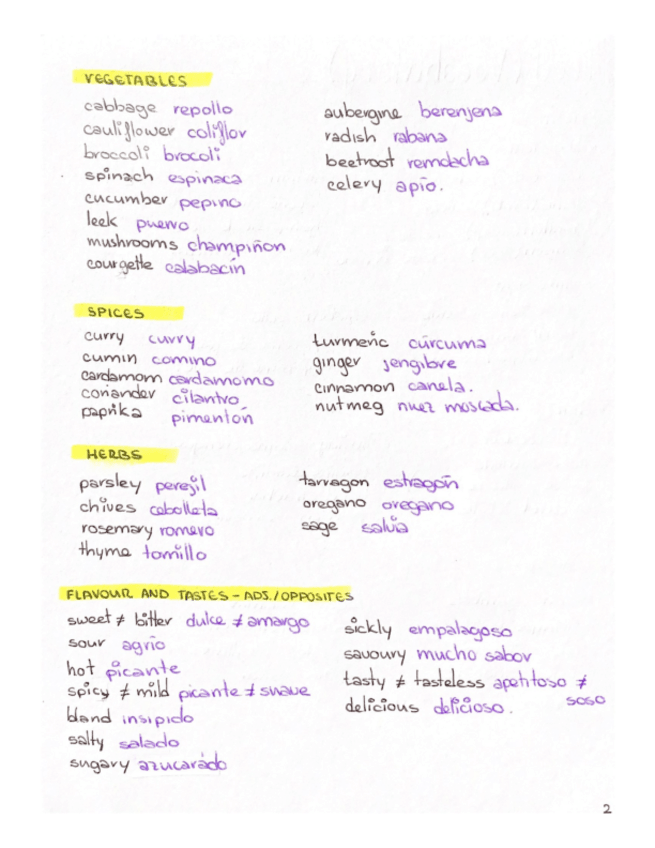 VEGETABLES
cabbage repollo
cauliflower coliflor
broccoli brocoli
spinach espinaca
cucumber pepino
leek puerro
mushrooms champiñon
courgette calabacín
aubergine berenjena
radish rabana
beetroot remolacha
celery apio.
SPICES
curry curry
cumin comino
cardamom cardamomo
coriander cilantro
paprika pimentón
turmeric cúrcuma
ginger jengibre
cinnamon canela.
nutmeg nuez moscada.
HERBS
parsley perejil
chives cebolleta
rosemary romero
thyme tomillo
tarragon estragón
oregano oregano
sage salvia
FLAVOUR AND TASTES - ADJ./OPPOSITES
sweet ≠ bitter dulce ≠ amargo
sour agrio
hot picante
spicy ≠ mild picante ≠ suave
bland insipido
salty salado
sugary azucarado
sickly empalagoso
savoury mucho sabor
tasty ≠ tasteless apetitoso ≠
soso
delicious delicioso.
2